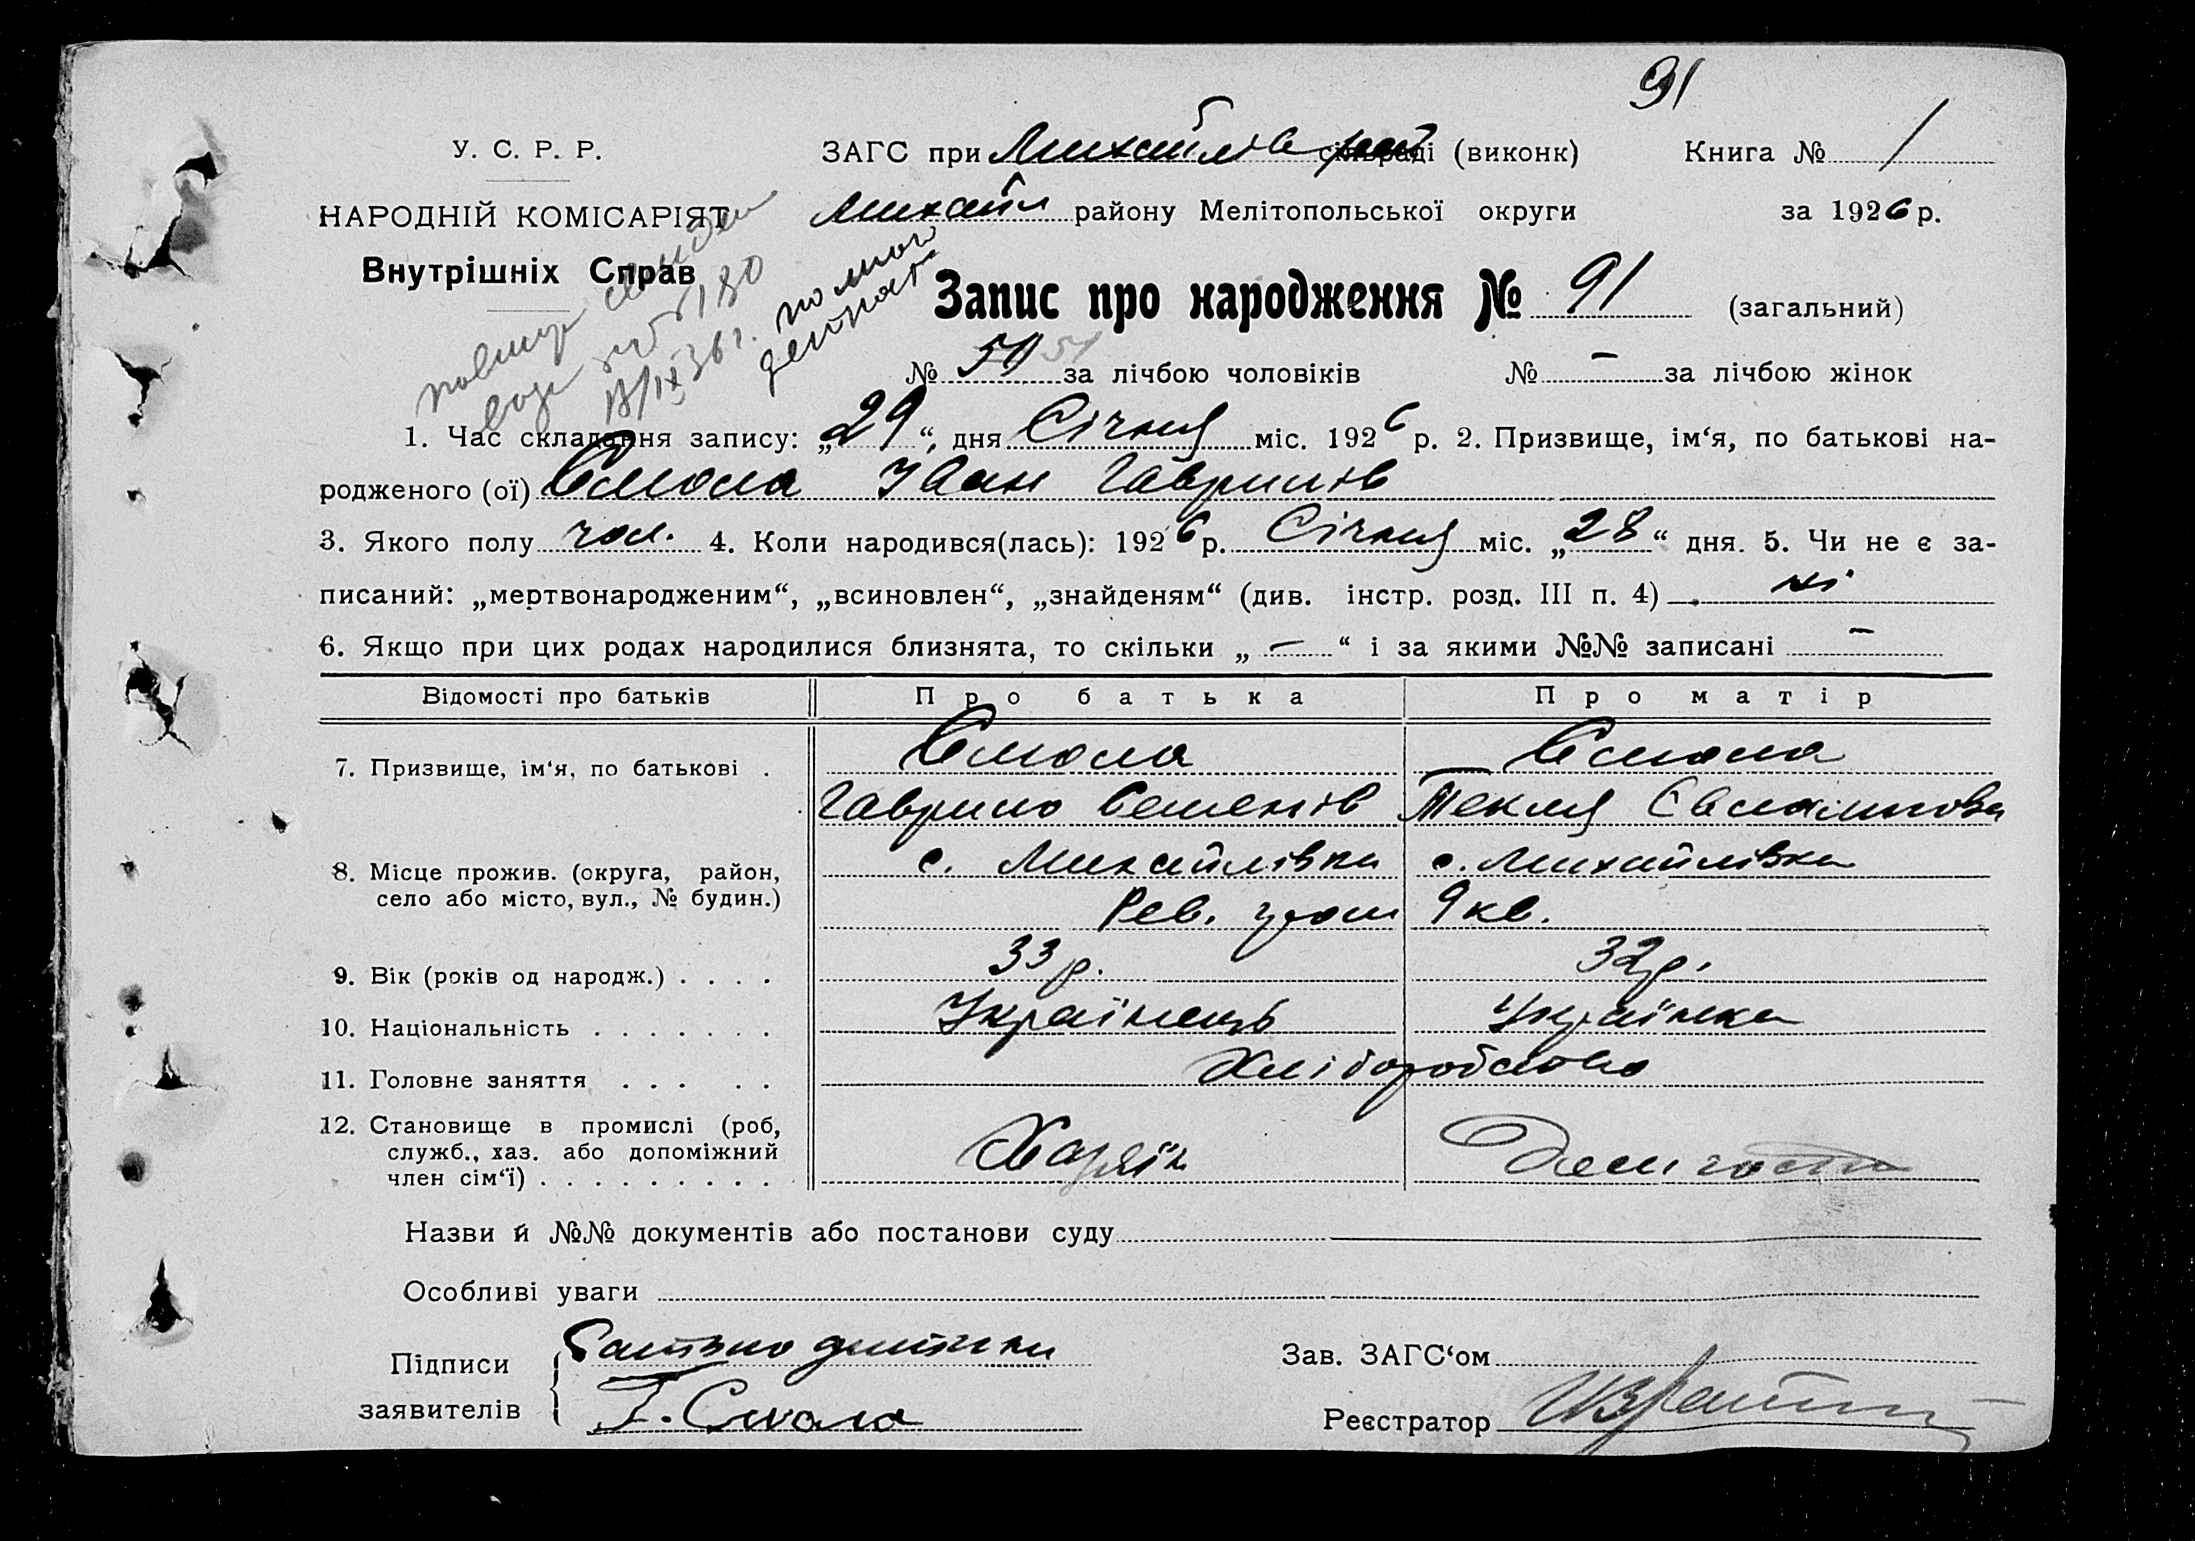 91
У. С. Р. Р. ЗАГС при Михайлів сільраді (виконк) Книга № 1
НАРОДНІЙ КОМІСАРІЯТ Михайл району Мелітопольської округи за 1926 р.
Внутрішніх Справ
Запис про народження № 91 (загальний)
№ 51 за лічбою чоловіків № – за лічбою жінок
1. Час складання запису: „29“, дня Січня міс. 1926 р. 2. Призвище, ім‘я, по батькові на-
родженого (ої) Смола Іван Гаврилів
3. Якого полу чол. 4. Коли народився(лась): 1926 р. Січня міс. „28“ дня. 5. Чи не є за-
писаний: „мертвонародженим“, „всиновлен“, „знайденям“ (див. інстр. розд. III п. 4) ні
6. Якщо при цих родах народилися близнята, то скільки „ – “ і за якими №№ записані –
Відомості про батьків Про батька Про матір
7. Призвище, ім‘я, по батькові . Смола Смола
Гаврило Семенів Текля Євлампова
8. Місце прожив. (округа, район, с. Михайлівка с. Михайлівка
село або місто, вул., № будин.) Рев. 9 кв.
9. Вік (років од народж.) . . . . 33 р. 32 р.
10. Національність . . . . . . . Українець Українка
11. Головне заняття . . . . . Хліборобство
12. Становище в промислі (роб,
служб., хаз. або допоміжний Хазяїн
член сім‘ї) . . . . . . . . .
Назви й №№ документів або постанови суду
Особливі уваги
Підписи Батько дитини Зав. ЗАГС‘ом
заявителів Г. Смола Реєстратор